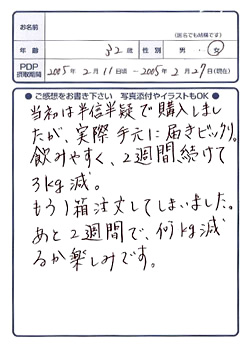 お名前
(匿名でも結構です)
年齢 32歳 性別 男・女
PDP 摂取期間 2005年2月11日頃 ～ 2005年2月27日(現在)
●ご感想をお書き下さい 写真添付やイラストもOK●
当初は半信半疑で購入しまし
たが、実際手元に届きビックリ。
飲みやすく、2週間続けて
3kg減。
もう1箱注文してしまいました。
あと2週間で、何kg減
るか楽しみです。